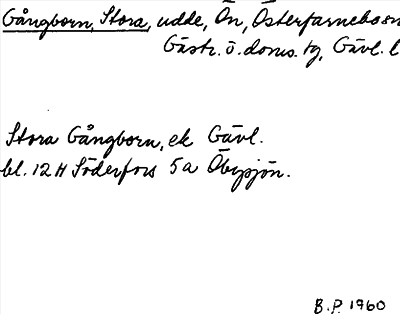 Gångborn, Stora, udde, Ön, Österfärnebo sn
Gästr. ö. doms. tg, Gävl. l
Stora Gångborn, ek Gävl.
bl. 12 H Söderfors 5a Öbysjön.
B.P. 1960